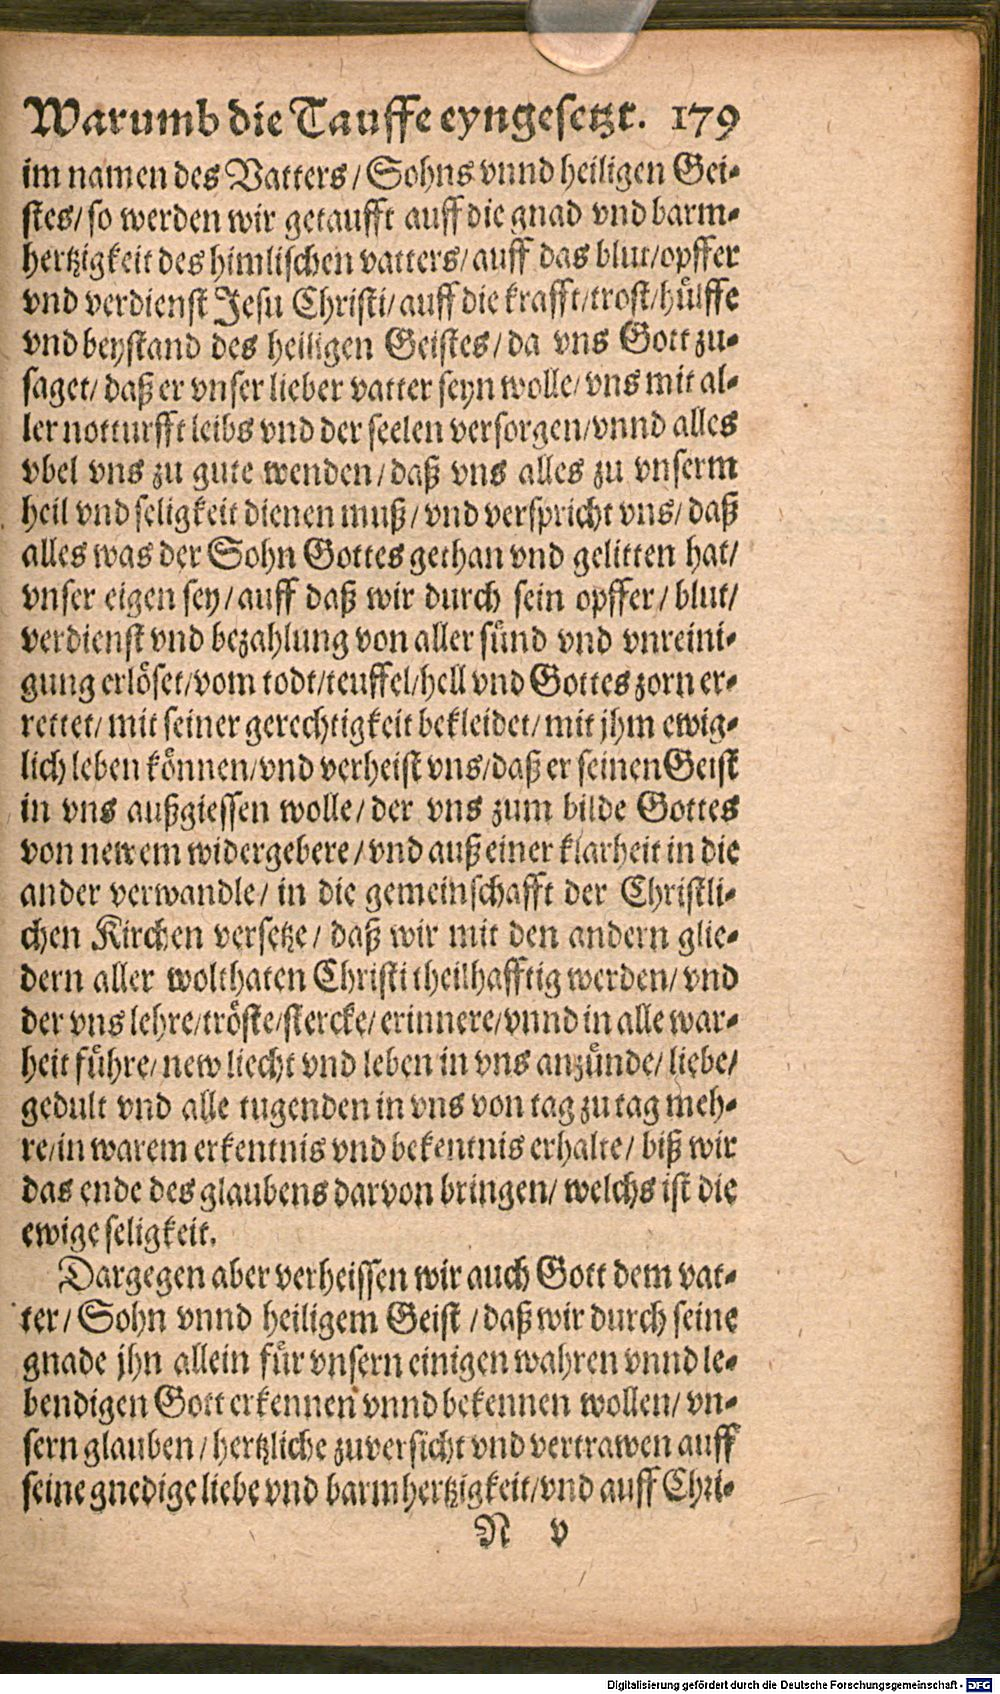 Warumb die Tauffe eyngesetzt. 179
im namen des Vatters/ Sohns vnnd heiligen Gei-
stes/ so werden wir getaufft auff die gnad vnd barm-
hertzigkeit des himlischen vatters/ auff das blut/ opffer
vnd verdienst Jesu Christi/ auff die krafft/ trost/ hülffe
vnd beystand des heiligen Geistes/ da vns Gott zu-
saget/ daß er vnser lieber vatter seyn wolle/ vns mit al-
ler notturfft leibs vnd der seelen versorgen/ vnnd alles
vbel vns zu gute wenden/ daß vns alles zu vnserm
heil vnd seligkeit dienen muß/ vnd verspricht vns/ daß
alles was der Sohn Gottes gethan vnd gelitten hat/
vnser eigen sey/ auff daß wir durch sein opffer/ blut/
verdienst vnd bezahlung von aller sünd vnd vnreini-
gung erlöset/ vom todt/ teuffel/ hell vnd Gottes zorn er-
rettet/ mit seiner gerechtigkeit bekleidet/ mit jhm ewig-
lich leben können/ vnd verheist vns/ daß er seinen Geist
in vns außgiessen wolle/ der vns zum bilde Gottes
von newem widergebere/ vnd auß einer klarheit in die
ander verwandle/ in die gemeinschafft der Christli-
chen Kirchen versetze/ daß wir mit den andern glie-
dern aller wolthaten Christi theilhafftig werden/ vnd
der vns lehre/ tröste/ stercke/ erinnere/ vnnd in alle war-
heit führe/ new liecht vnd leben in vns anzünde/ liebe/
gedult vnd alle tugenden in vns von tag zu tag meh-
re/ in warem erkentnis vnd bekentnis erhalte/ biß wir
das ende des glaubens darvon bringen/ welchs ist die
ewige seligkeit.
Dargegen aber verheissen wir auch Gott dem vat-
ter/ Sohn vnnd heiligem Geist/ daß wir durch seine
gnade jhn allein für vnsern einigen wahren vnnd le-
bendigen Gott erkennen vnnd bekennen wollen/ vn-
sern glauben/ hertzliche zuversicht vnd vertrawen auff
seine gnedige liebe vnd barmhertzigkeit/ vnd auff Chri-
N v
Digitalisierung gefördert durch die Deutsche Forschungsgemeinschaft - DFG